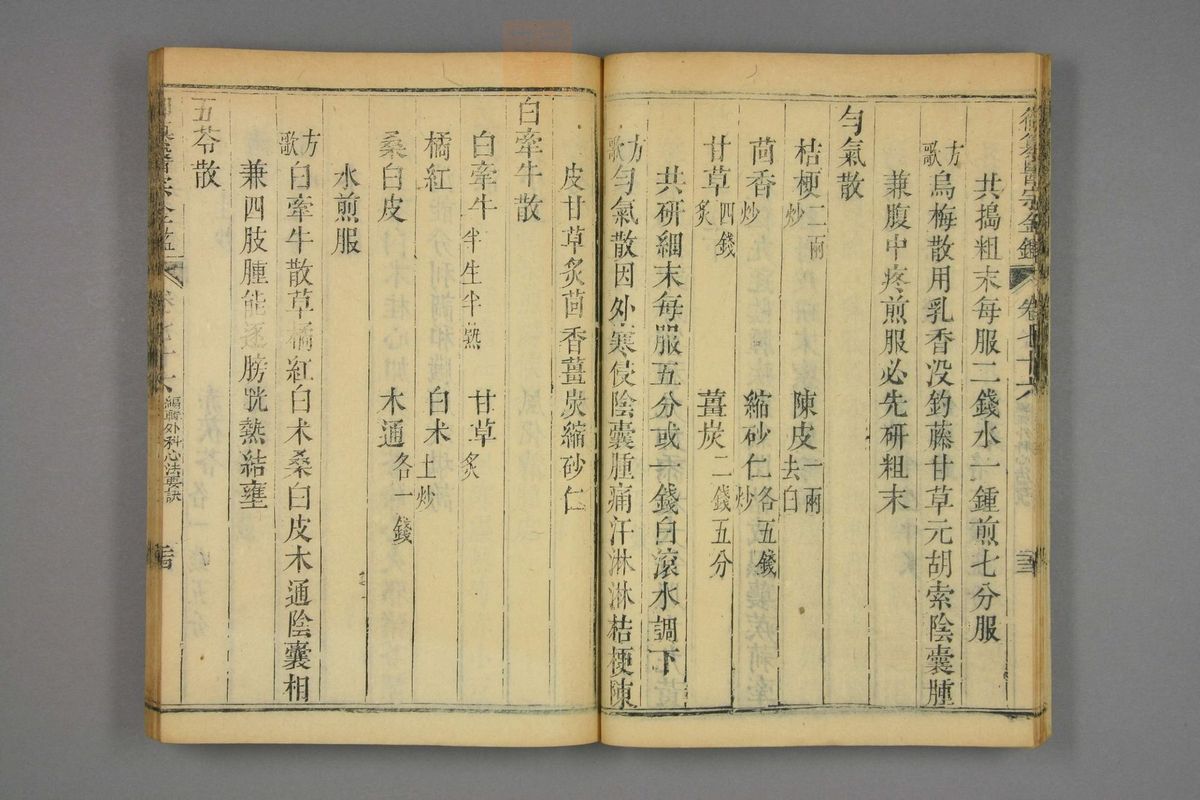 御纂醫宗金鑑 卷七十六
共搗粗末每服二錢水一鍾煎七分服
方歌 烏梅散用乳香没鈎藤甘草元胡索陰囊腫
兼腹中疼煎服必先研粗末
勻氣散
桔梗炒二兩 陳皮去白一兩
茴香炒 縮砂仁炒各五錢
甘草炙四錢 薑炭二錢五分
共研細末每服五分或一錢白滾水調下
方歌 勻氣散因外寒侵陰囊腫痛汗淋淋桔梗陳
皮甘草炙茴香薑炭縮砂仁
白牽牛散
白牽牛半生半熟 甘草炙
橘紅 白术土炒
桑白皮 木通各一錢
水煎服
方歌 白牽牛散草橘紅白术桑白皮木通陰囊相
兼四肢腫能逐膀胱熱結壅
五苓散
編輯外科心法要訣